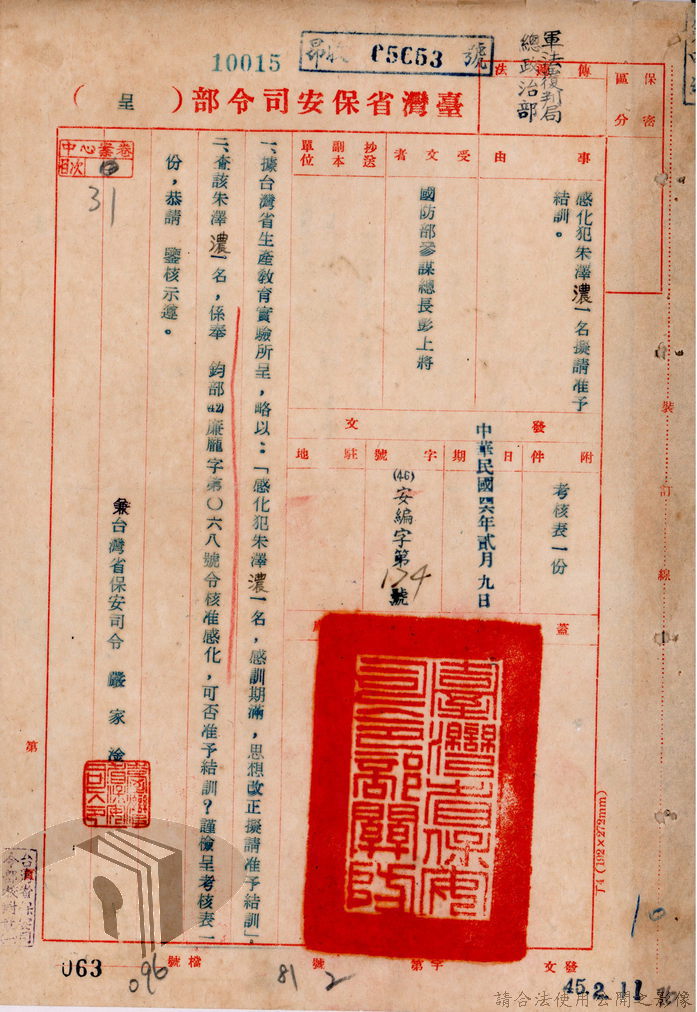 軍法覆判局
總政治部
10015
05653 號
臺灣省保安司令部(呈)
保密
區分
傳遞
法
事由
感化犯朱澤濃一名擬請准予
結訓。
受文者
國防部參謀總長彭上將
抄送
副本
單位
附件
考核表一份
發文
日期
中華民國四六年貳月九日
字號
(46)安編字第134號
駐地
蓋
臺灣省保安
司令部關防
中心案卷
目次
31
一、據台灣省生產教育實驗所呈,略以:「感化犯朱澤濃一名,感訓期滿,思想改正擬請准予結訓」。
二、查該朱澤濃一名,係奉 鈞部(42)廉龍字第〇六八號令核准感化,可否准予結訓?謹檢呈考核表一
份,恭請 鑒核示遵。
兼台灣省保安司令 嚴家淦
裝訂線
T4 (192×272mm)
第
號
檔號
字第
發文
063
096
81
2
10
45.2.11
請合法使用公開之影像